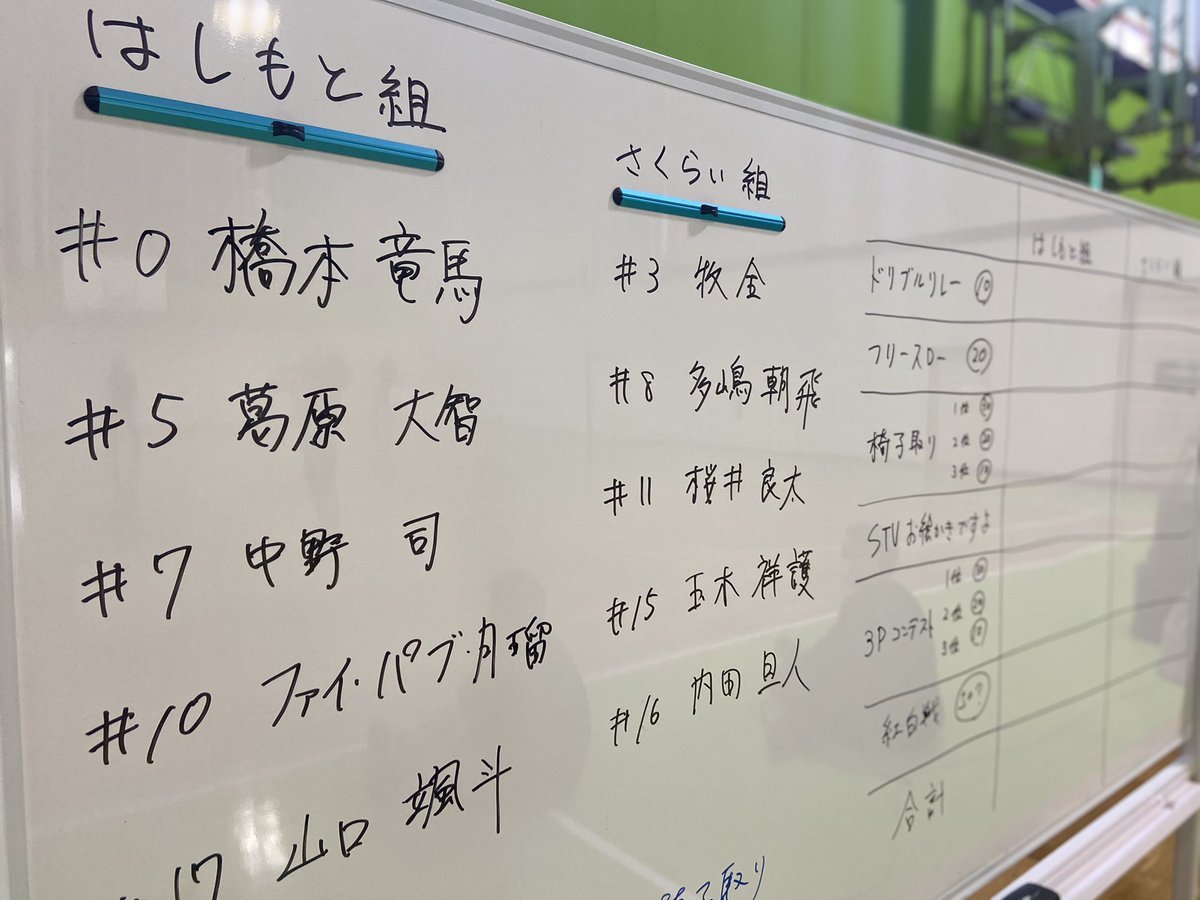 はしもと組
#0 橋本 竜馬
#5 葛原 大智
#7 中野 司
#10 ファイ・パプ・月瑠
#17 山口 颯斗
さくらい組
#3 牧 全
#8 多嶋 朝飛
#11 桜井 良太
#15 玉木 祥護
#16 内田 旦人
はしもと組 さくらい組
ドリブルリレー ⑩
フリースロー ⑳
椅子取り
1位
2位 ⑳
3位 ⑩
STVお絵かきですよ
3Pコンテスト
1位
2位 ⑳
3位
紅白戦 50?
合計
取り